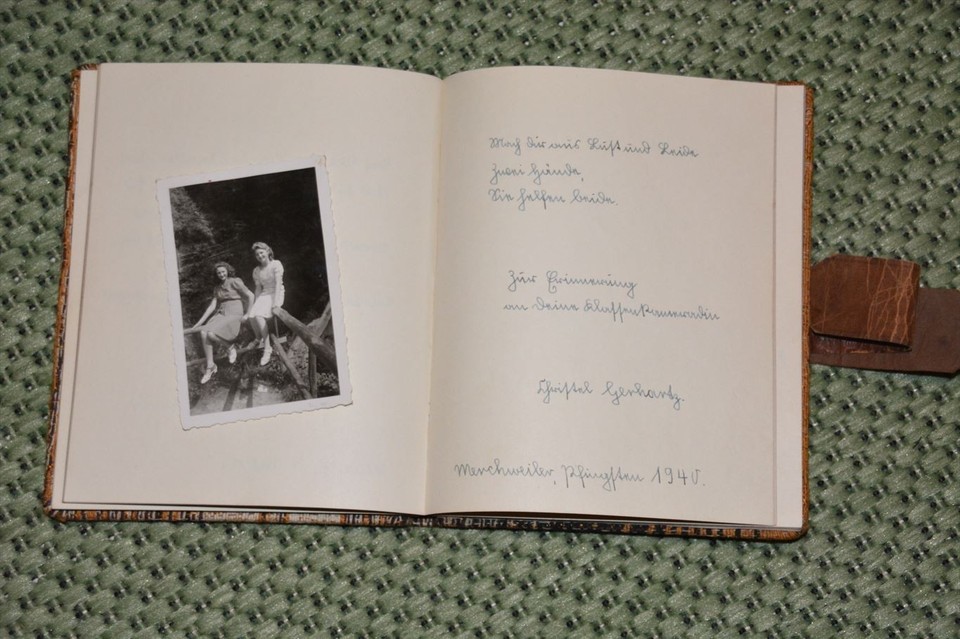 Mach dir aus Lust und Leide
zwei Hände,
Sie helfen beide.
Zur Erinnerung
an deine Klassenkameradin
Christel Gerhartz.
Merchweiler, Pfingsten 1940.